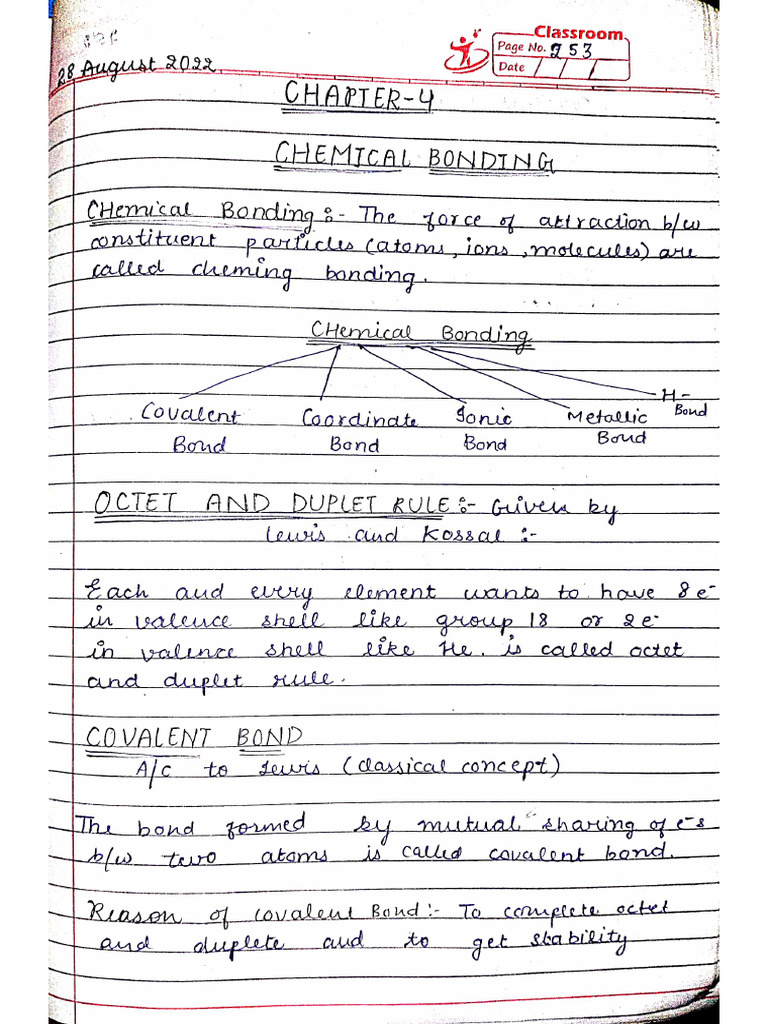 Classroom
Page No. 253
Date / / /
28 August 2022
CHAPTER-4
CHEMICAL BONDING
CHemical Bonding:- The force of attraction b/w
constituent particles (atoms, ions, molecules) are
called cheming bonding.
CHemical Bonding
Covalent Bond
Coordinate Bond
Ionic Bond
Metallic Bond
H- Bond
OCTET AND DUPLET RULE:- Given by
Lewis and Kossal :-
Each and every element wants to have 8 e-
in valence shell like group 18 or 2e-
in valence shell like He. is called octet
and duplet rule.
COVALENT BOND
A/C to Lewis (classical concept)
The bond formed by mutual sharing of e-s
b/w two atoms is called covalent bond.
Reason of covalent Bond:- To complete octet
and duplete and to get stability